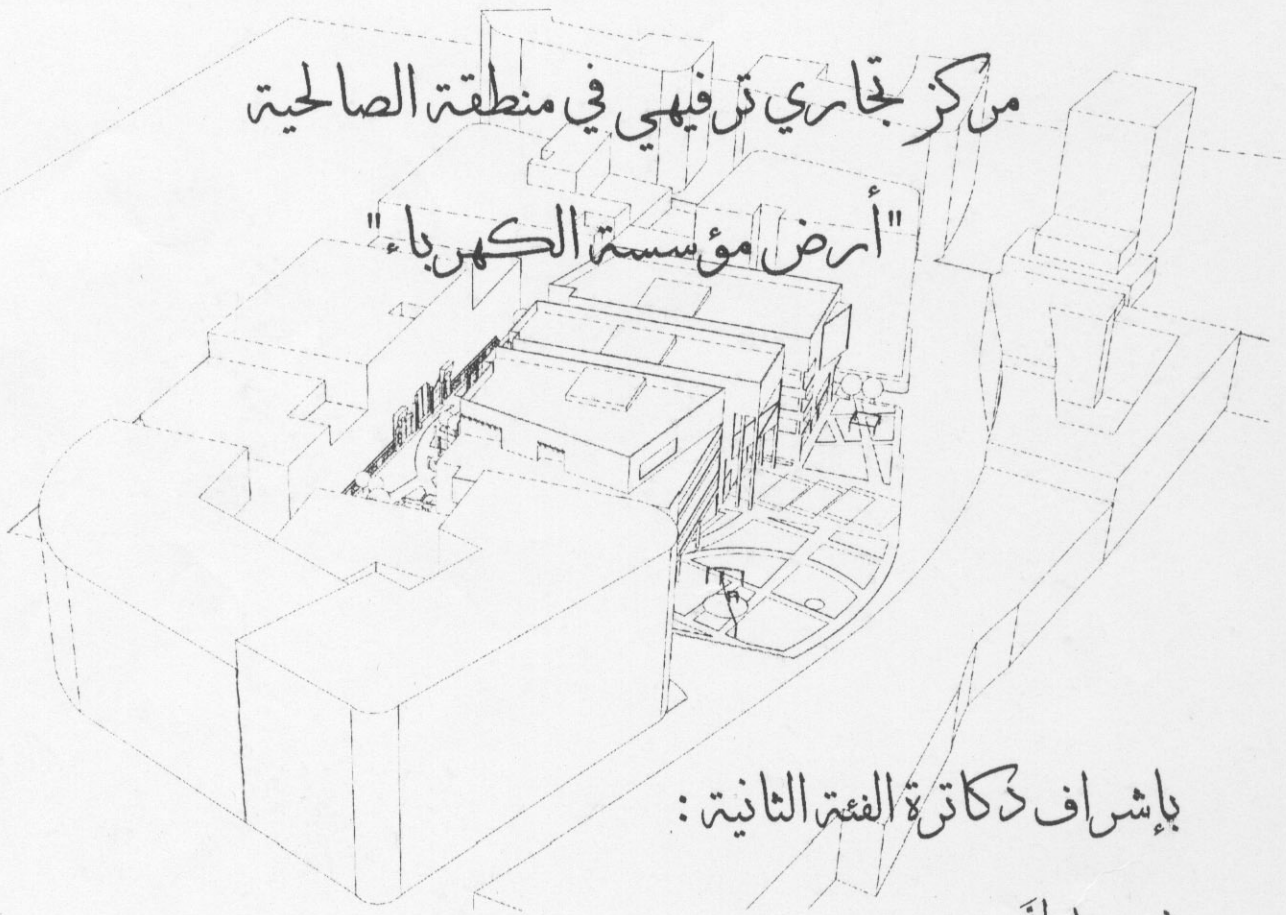 مركز تجاري ترفيهي في منطقة الصالحية
"أرض مؤسسة الكهرباء"
بإشراف دكاترة الفئة الثانية :